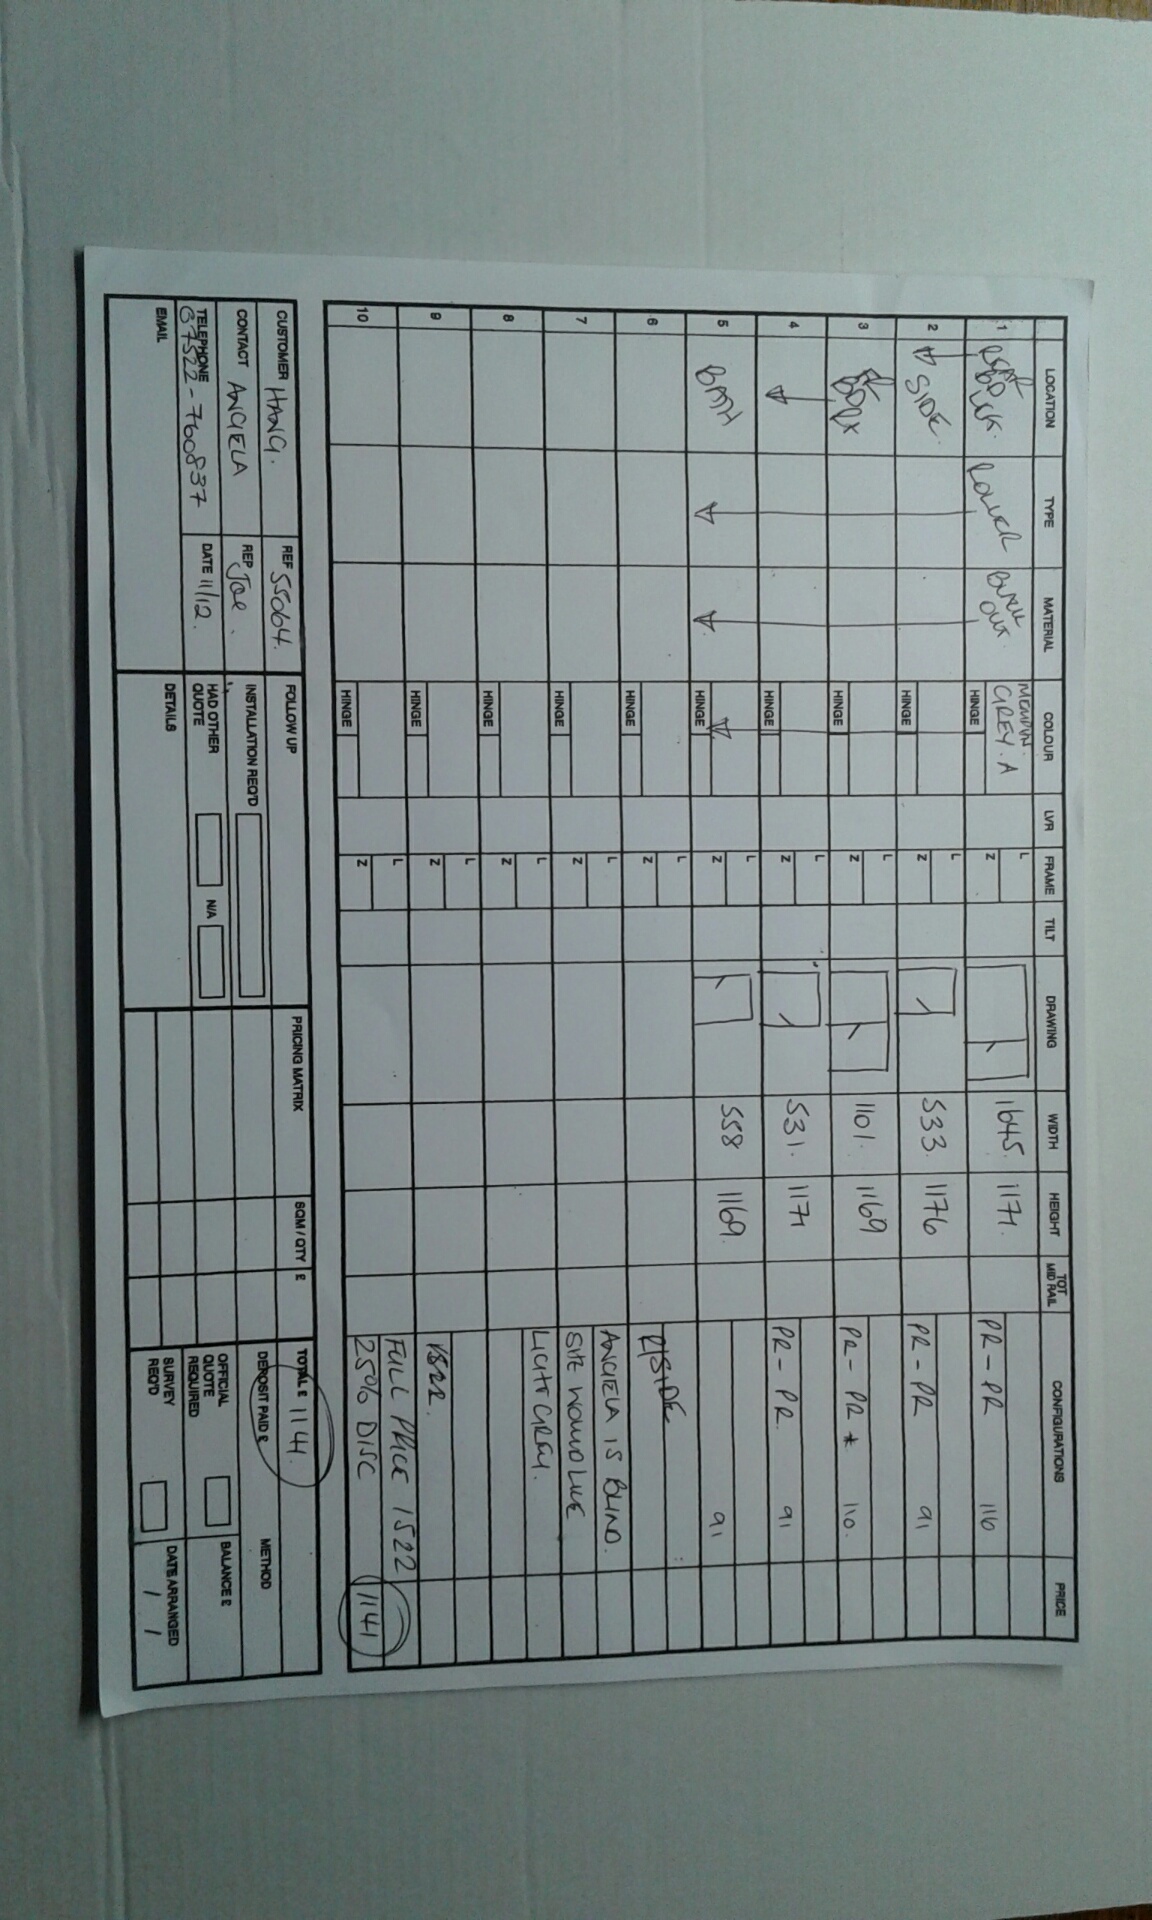 LOCATION TYPE MATERIAL COLOUR LVR FRAME TILT DRAWING WIDTH HEIGHT TOT MID RAIL CONFIGURATIONS PRICE
1 ROLLER OUT GREY. A HINGE L Z 1645. 1171. PR-PR 116
2 SIDE. HINGE L Z 533. 1176 PR-PR 91
3 HINGE L Z 1101. 1169 PR-PR * 110.
4 HINGE L Z 531. 1171 PR-PR. 91
5 BATH HINGE L Z 558 1169. 91
6 HINGE L Z R/SIDE
ANGELA IS BLIND.
7 HINGE L Z SHE WOULD LIKE
LIGHT GREY.
8 HINGE L Z
9 HINGE L Z
FULL PRICE 1522
10 HINGE L Z 25% DISC 1141
CUSTOMER HANG. REF 55064. FOLLOW UP PRICING MATRIX SQM / QTY £ TOTAL £ 1141.
CONTACT ANGELA REP Joe. INSTALLATION REQ'D DEPOSIT PAID £ METHOD
TELEPHONE 07522-760837 DATE 11/12. HAD OTHER QUOTE N/A OFFICIAL QUOTE REQUIRED BALANCE £
EMAIL DETAILS SURVEY REQ'D DATE ARRANGED / /